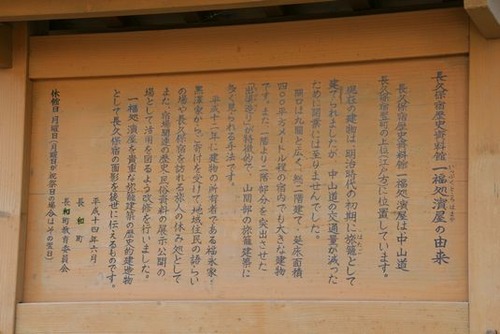 長久保宿歴史資料館 一福処濱屋の由来
長久保宿歴史資料館一福処濱屋は中山道
長久保宿竪町の上位(江戸方)に位置しています。
現在の建物は、明治時代の初期に旅籠として
建てられましたが、中山道の交通量が減った
ために開業には至りませんでした。
間口は九間と広く、総二階建て、延床面積
四〇〇平方メートル程の宿内でも大きな建物
です。また一階より二階部分を突出させた
「出桁造り」が特徴的で、山間部の旅籠建築に
多く見られる手法です。
平成十二年に建物の所有者である福永家・
黒澤家からご寄付を受けて、地域住民の語らい
の場や長久保宿を訪れる旅人の休み処として
また、宿場関連の歴史・民俗資料の展示公開の
場として活用を図るよう改修を行いました。
一福処濱屋を貴重な旅籠建築の歴史的建造物
として、長久保宿の面影を後世に伝えるものです。
平成十四年六月
長和町
長和町教育委員会
休館日 月曜日(月曜日が祝祭日の場合はその翌日)